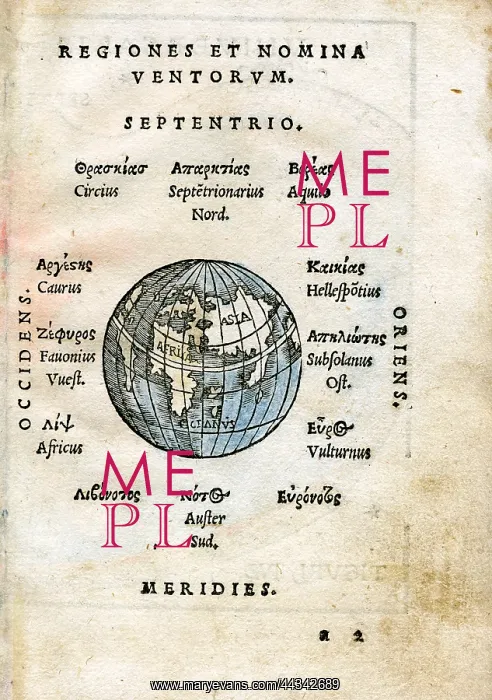 REGIONES ET NOMINA
VENTORVM.
SEPTENTRIO.
Θρασκίασ Απαρκτίας Βορέας
Circius Septētrionarius Aquilo
Nord.
ME
PL
Αργέσης Καικίας
Caurus Hellespōtius
OCCIDENS.
ORIENS.
Ζέφυρος Απηλιώτης
Fauonius Subsolanus
Vuest. Ost.
ASIA
AFRICA
OCEANVS
Λίψ Εὖρος
Africus Vulturnus
ME
PL
Λιβόνοτος Νότος Εὐρόνοτος
Auster
Sud.
MERIDIES.
a 2
www.maryevans.com/44342689